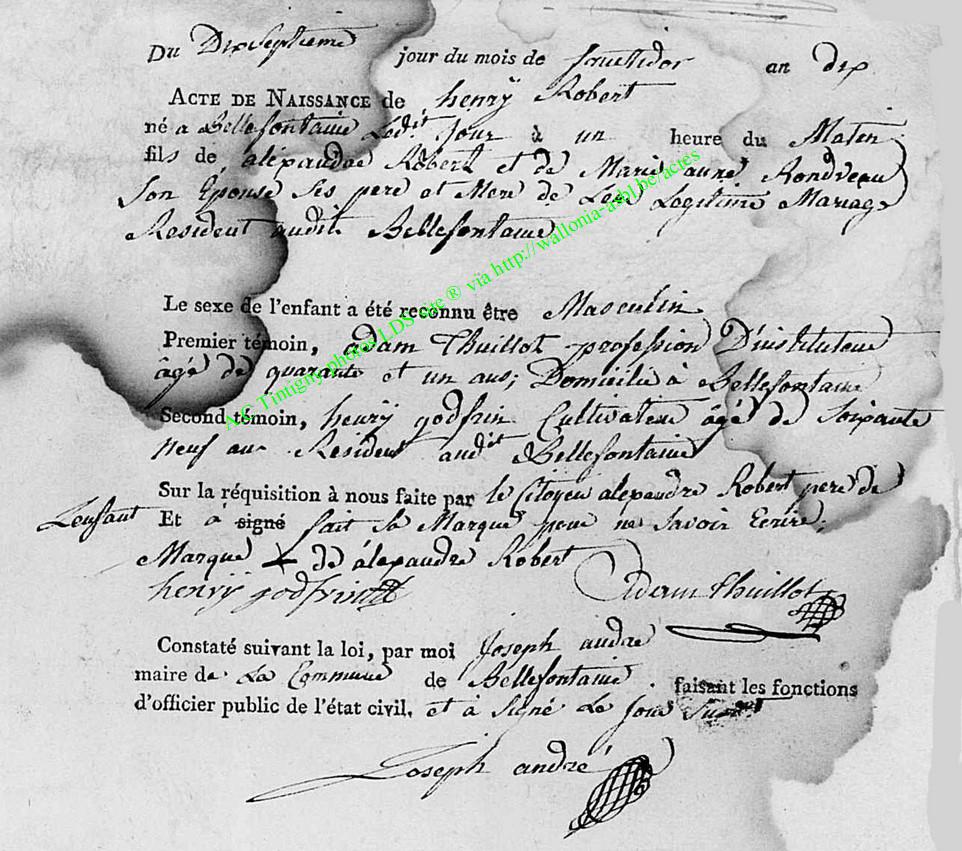 Du Dixseptieme jour du mois de fructidor an dix
ACTE DE NAISSANCE de henrÿ Robert
né a Bellefontaine Ledit Jour à un heure du Matin
fils de aléxandre Robert et de Marie anne Rondveau
Son Épouse Ses pere et Mere de Leur Legitime Mariage
Resident audit Bellefontaine
Le sexe de l'enfant a été reconnu être Masculin
Premier témoin, adam Thuillot profession D'instituteur
âgé de quarante et un ans; Domicilié à Bellefontaine
Second témoin, henrÿ godfrin Cultivateur âgé de Soixante
neuf ans Resident audit Bellefontaine
Sur la réquisition à nous faite par le Citoyen alexandre Robert pere de
L'enfant Et à signé fait sa Marque pour ne Savoir Ecrire.
Marque + de aléxandre Robert
henrÿ godfrin
Adam Thuillot
Constaté suivant la loi, par moi Joseph andre
maire de La Commune de Bellefontaine. faisant les fonctions
d'officier public de l'état civil, et à Signé Le Jour Susdit
Joseph andré
A.C. Tintigny photos LDS site ® via http://wallonia-asbl.be/actes